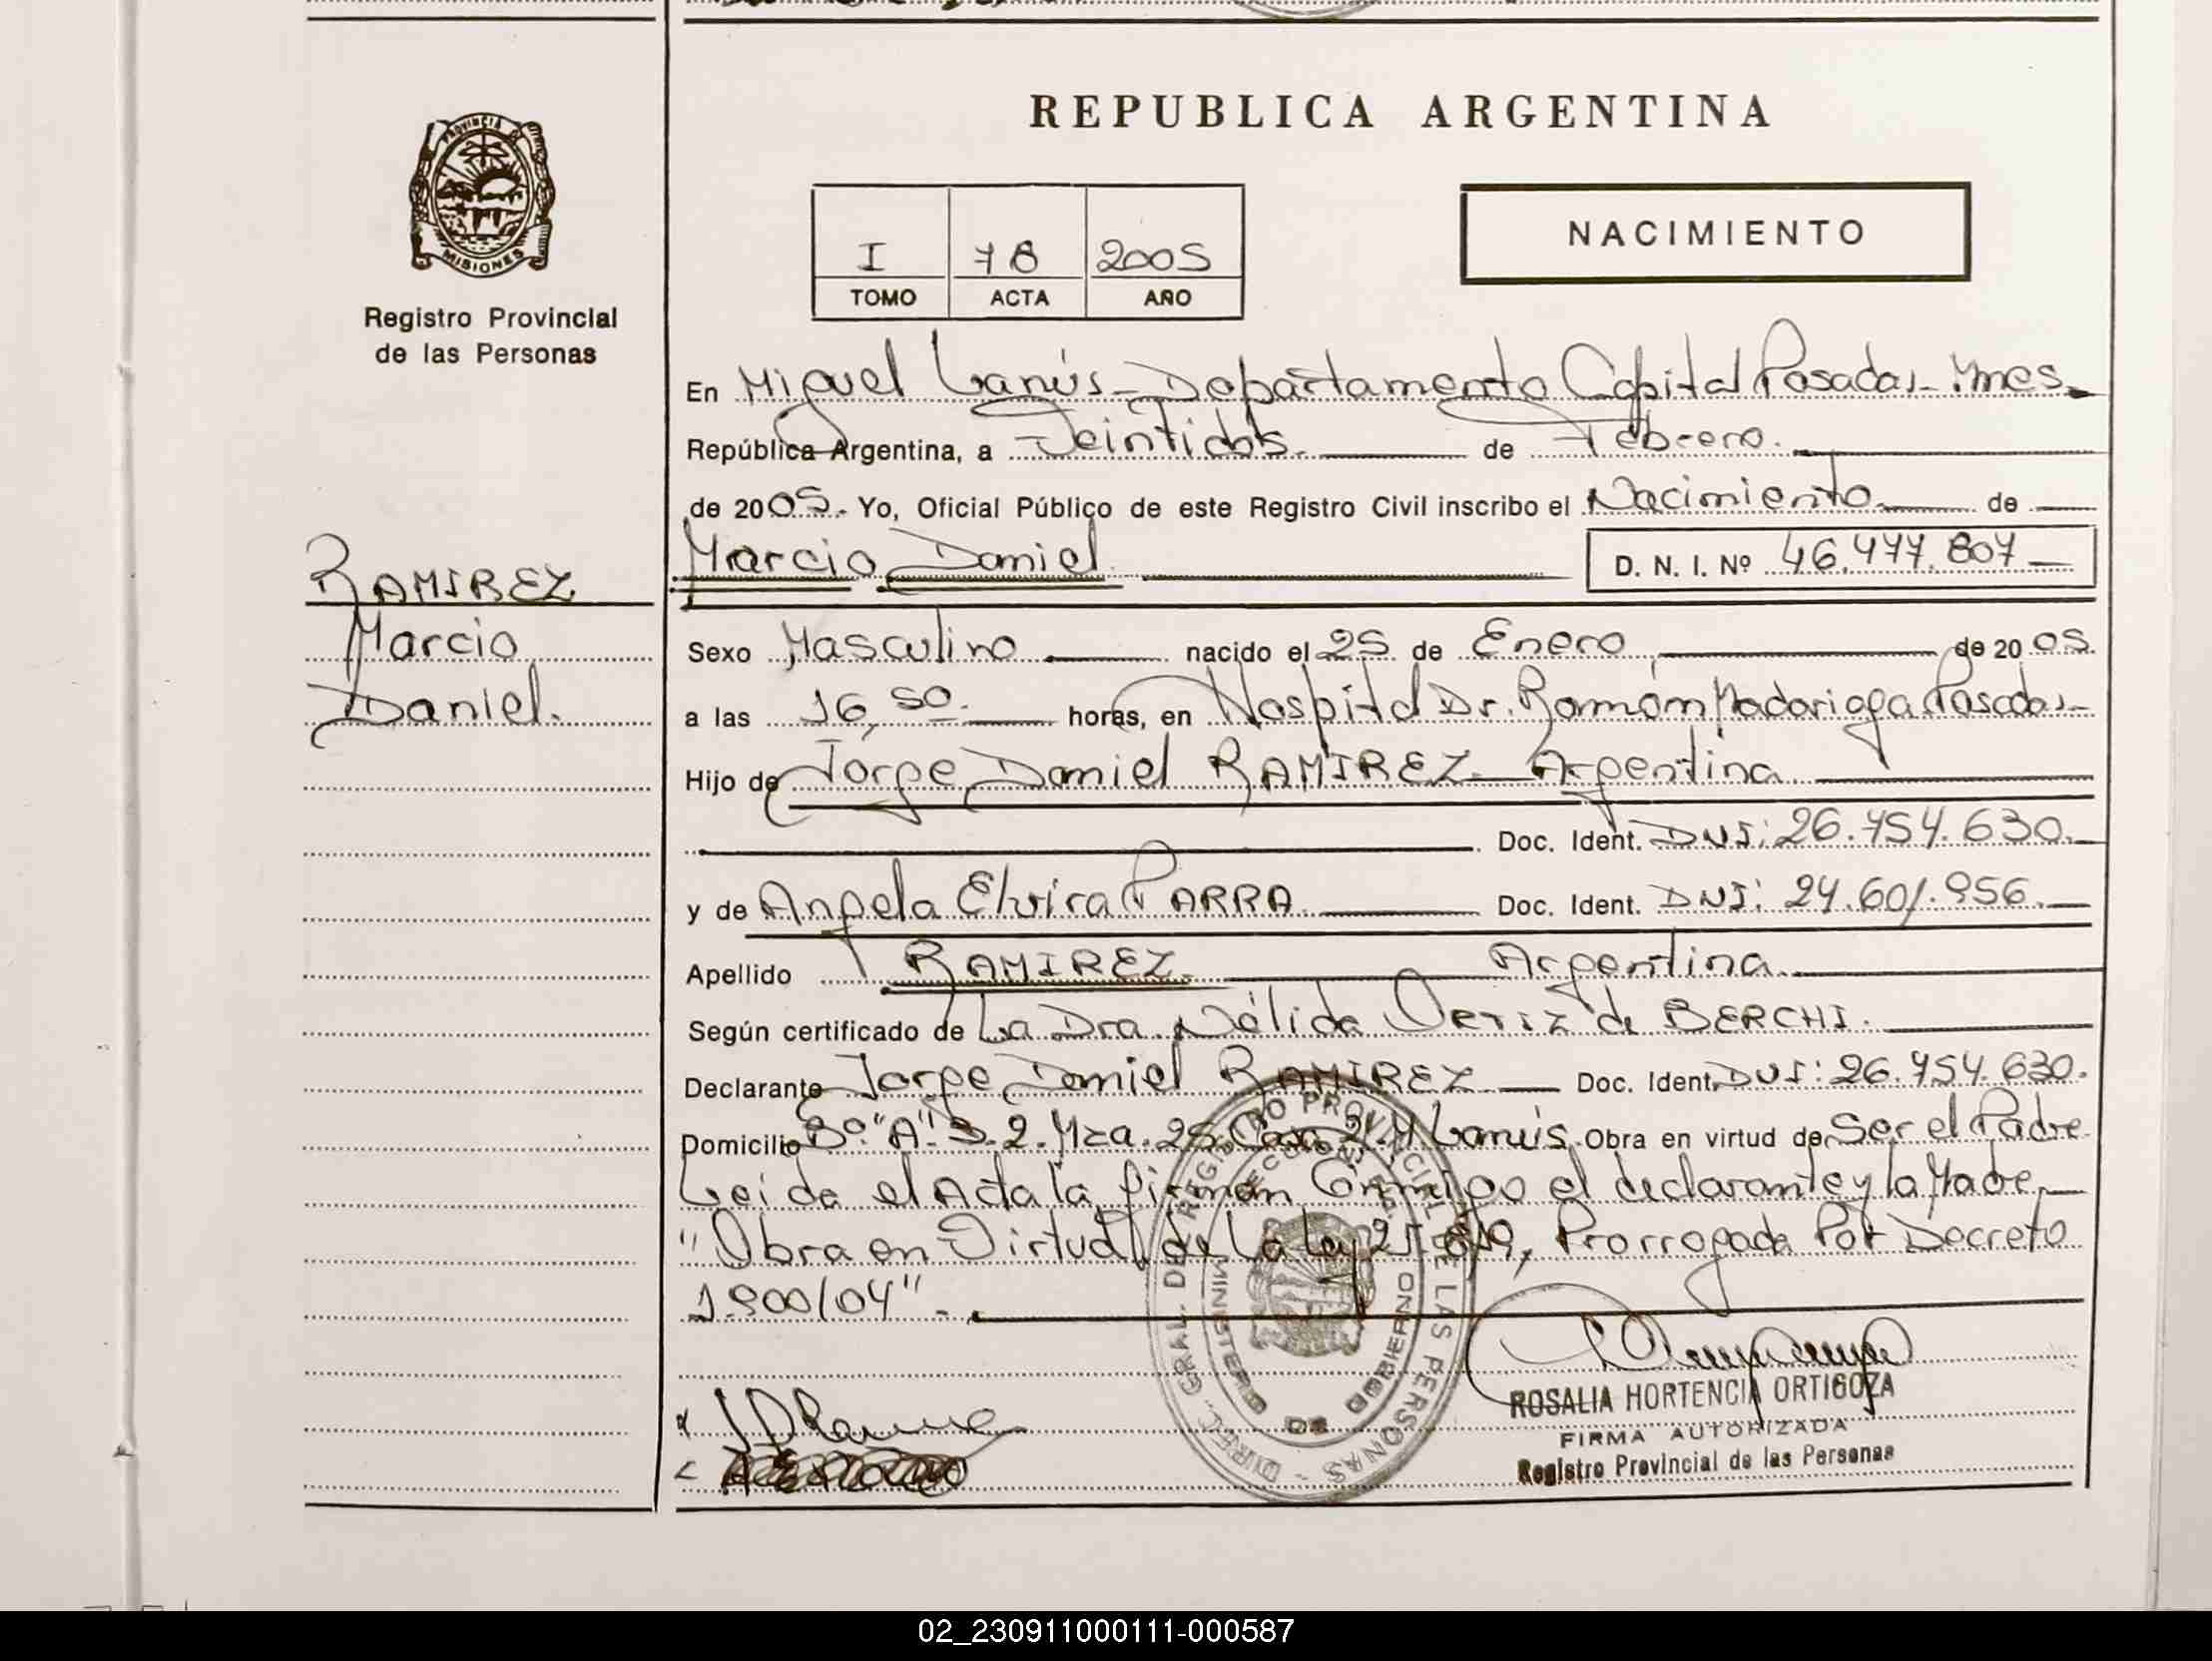 REPUBLICA ARGENTINA
PROVINCIA DE
MISIONES
Registro Provincial
de las Personas
I 78 2005
TOMO ACTA AÑO
NACIMIENTO
En Miguel Lanús - Departamento Capital Posadas - Mnes.
República Argentina, a Veintidós de Febrero.
de 2005. Yo, Oficial Público de este Registro Civil inscribo el Nacimiento de
RAMIREZ
Marcio
Daniel.
Marcio Daniel D. N. I. Nº 46.477.807
Sexo Masculino nacido el 25 de Enero de 2005.
a las 16,50. horas, en Hospital Dr. Ramón Madariaga Posadas
Hijo de Jorge Daniel RAMIREZ Argentina
Doc. Ident. DNI: 26.754.630.
y de Angela Elvira PARRA. Doc. Ident. DNI: 24.601.956.
Apellido RAMIREZ Argentina.
Según certificado de La Dra. Nélida Ortiz de BERCHI.
Declarante Jorge Daniel RAMIREZ Doc. Ident. DNI: 26.754.630.
Domicilio Bº. "A" 3.2. Mza. 25. Casa 21. M Lanús. Obra en virtud de Ser el Padre
Leida el Acta la firman Conmigo el declarante y la Madre
"Obra en Virtud de la Ley 25.819, Prorrogada Por Decreto
1.900/04".
DIREC. GRAL. DEL REGISTRO PROVINCIAL DE LAS PERSONAS
MINISTERIO DE GOBIERNO
ROSALIA HORTENCIA ORTIGOZA
FIRMA AUTORIZADA
Registro Provincial de las Personas
02_230911000111-000587